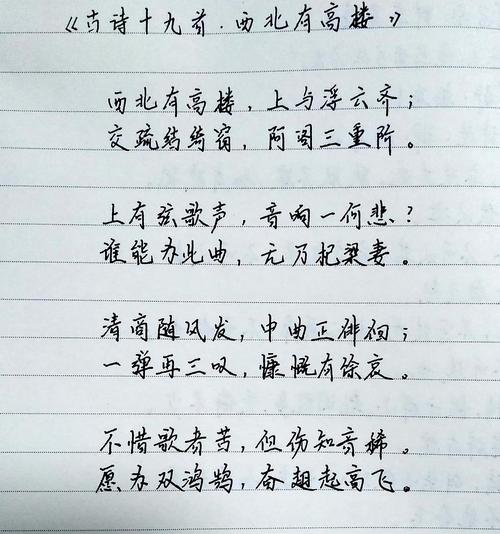 《古诗十九首·西北有高楼》
西北有高楼，上与浮云齐；
交疏结绮窗，阿阁三重阶。
上有弦歌声，音响一何悲？
谁能为此曲，无乃杞梁妻。
清商随风发，中曲正徘徊；
一弹再三叹，慷慨有馀哀。
不惜歌者苦，但伤知音稀。
愿为双鸿鹄，奋翅起高飞。